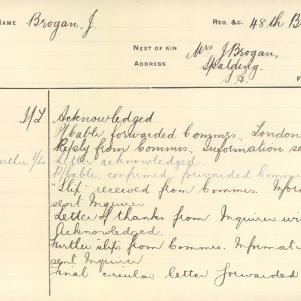 NAME Brogan, J. REG. &C. 48th B
NEXT OF KIN Mrs J Brogan,
ADDRESS Spalding.
S.A.
F
Acknowledged
P/Cable forwarded Commrs. London
Reply from Commrs. Information se
Letter acknowledged.
P/Cable, confirmed, forwarded Comm
"Slip" received from Commrs. Infor
sent Inquirer
Letter of thanks from Inquirer
Acknowledged.
Further slips from Commrs. Informati
sent Inquirer
Final circular letter forwarded